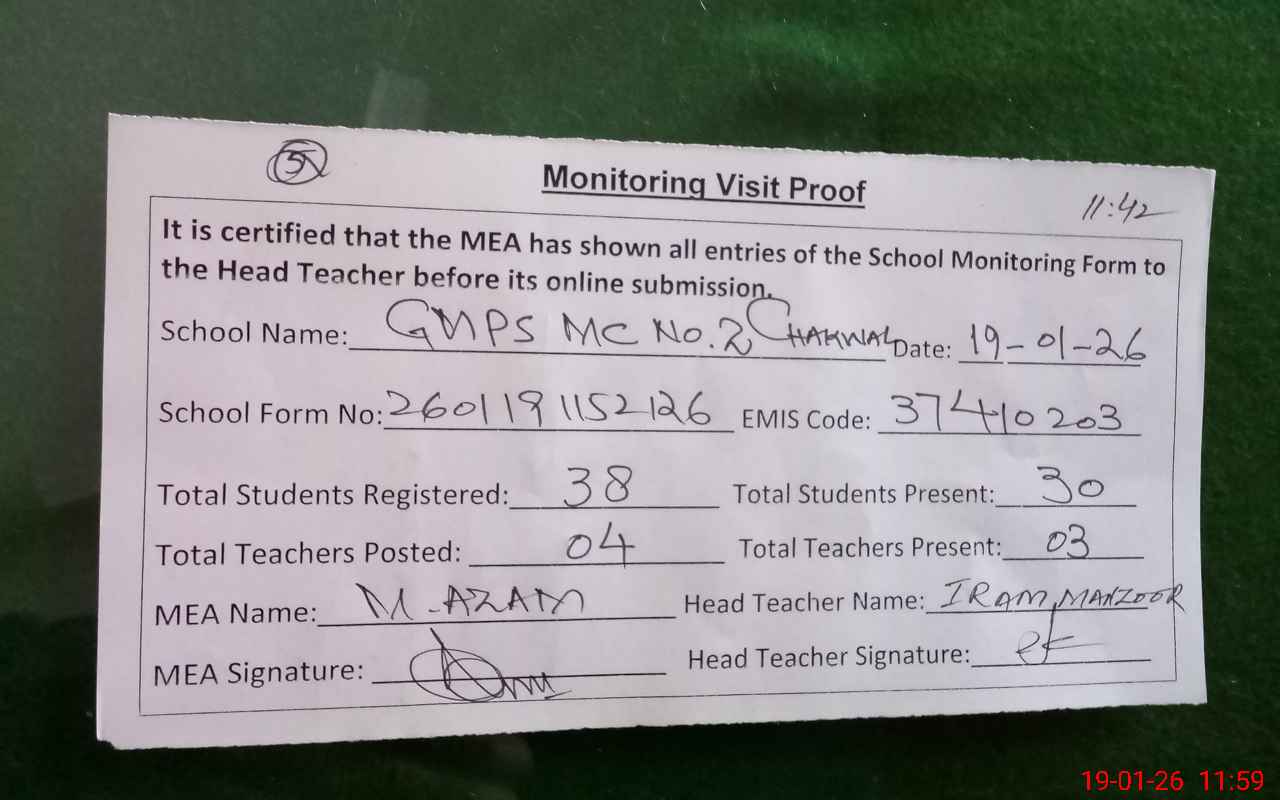 5
Monitoring Visit Proof
11:42
It is certified that the MEA has shown all entries of the School Monitoring Form to
the Head Teacher before its online submission.
School Name: GMPS MC No. 2 CHAKWAL Date: 19-01-26
School Form No: 260119115212 6 EMIS Code: 37410203
Total Students Registered: 38 Total Students Present: 30
Total Teachers Posted: 04 Total Teachers Present: 03
MEA Name: M-AZAM Head Teacher Name: IRAM MANZOOR
MEA Signature: Head Teacher Signature:
19-01-26 11:59